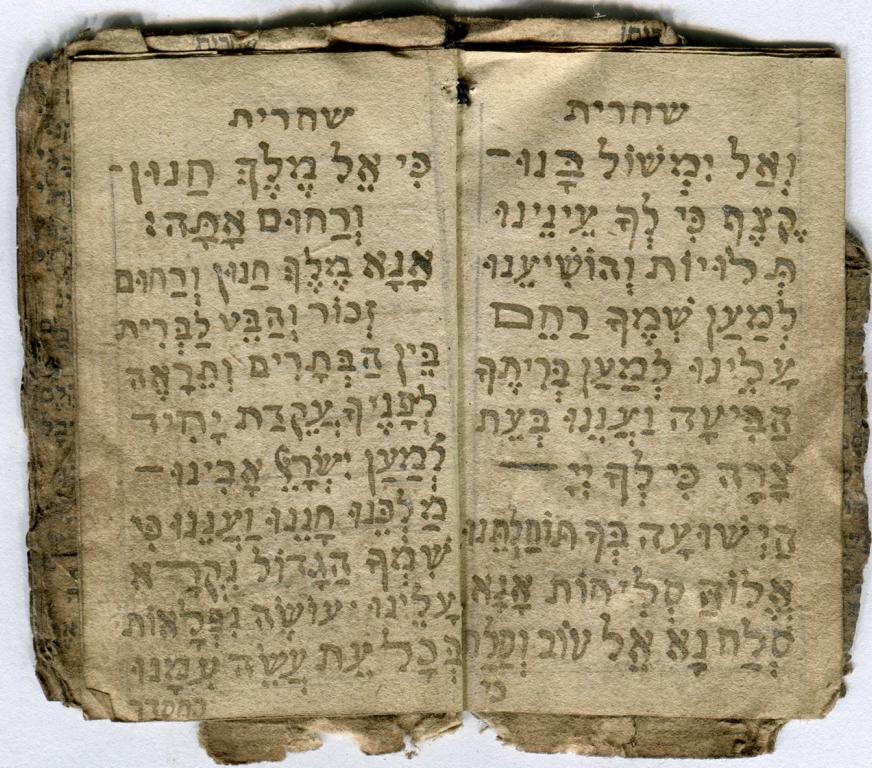 שחרית
וְאַל יִמְשׁוֹל בָּנוּ־
קֶצֶף כִּי לְךָ עֵינֵינוּ
תְלוּיוֹת וְהוֹשִׁיעֵנוּ
לְמַעַן שְׁמֶךָ רַחֵם
עָלֵינוּ לְמַעַן בְּרִיתֶךָ
הַבִּיטָה וַעֲנֵנוּ בְּעֵת
צָרָה כִּי לְךָ יְיָ
הַיְשׁוּעָה בְּךָ תוֹחַלְתֵּנוּ
אֱלוֹהַּ סְלִיחוֹת אָנָא
סְלַח נָא אֵל טוֹב וְסַלָּח
כי
שחרית
כִּי אֵל מֶלֶךְ חַנוּן־
וְרַחוּם אָתָּה:
אָנָא מֶלֶךְ חַנוּן וְרַחוּם
זְכוֹר וְהַבֵּט לַבְּרִית
בֵּין הַבְּתָרִים וְתֵרָאֶה
לְפָנֶיךָ עֲקֵדַת יָחִיד
לְמַעַן יִשְׂרָאֵל אָבִינוּ־
מַלְכֵּנוּ חָנֵנוּ וַעֲנֵנוּ כִּי
שִׁמְךָ הַגָּדוֹל נִקְרָא
עָלֵינוּ עוֹשֵׂה נִפְלָאוֹת
בְּכָל עֵת עֲשֵׂה עִמָּנוּ
כחסדך